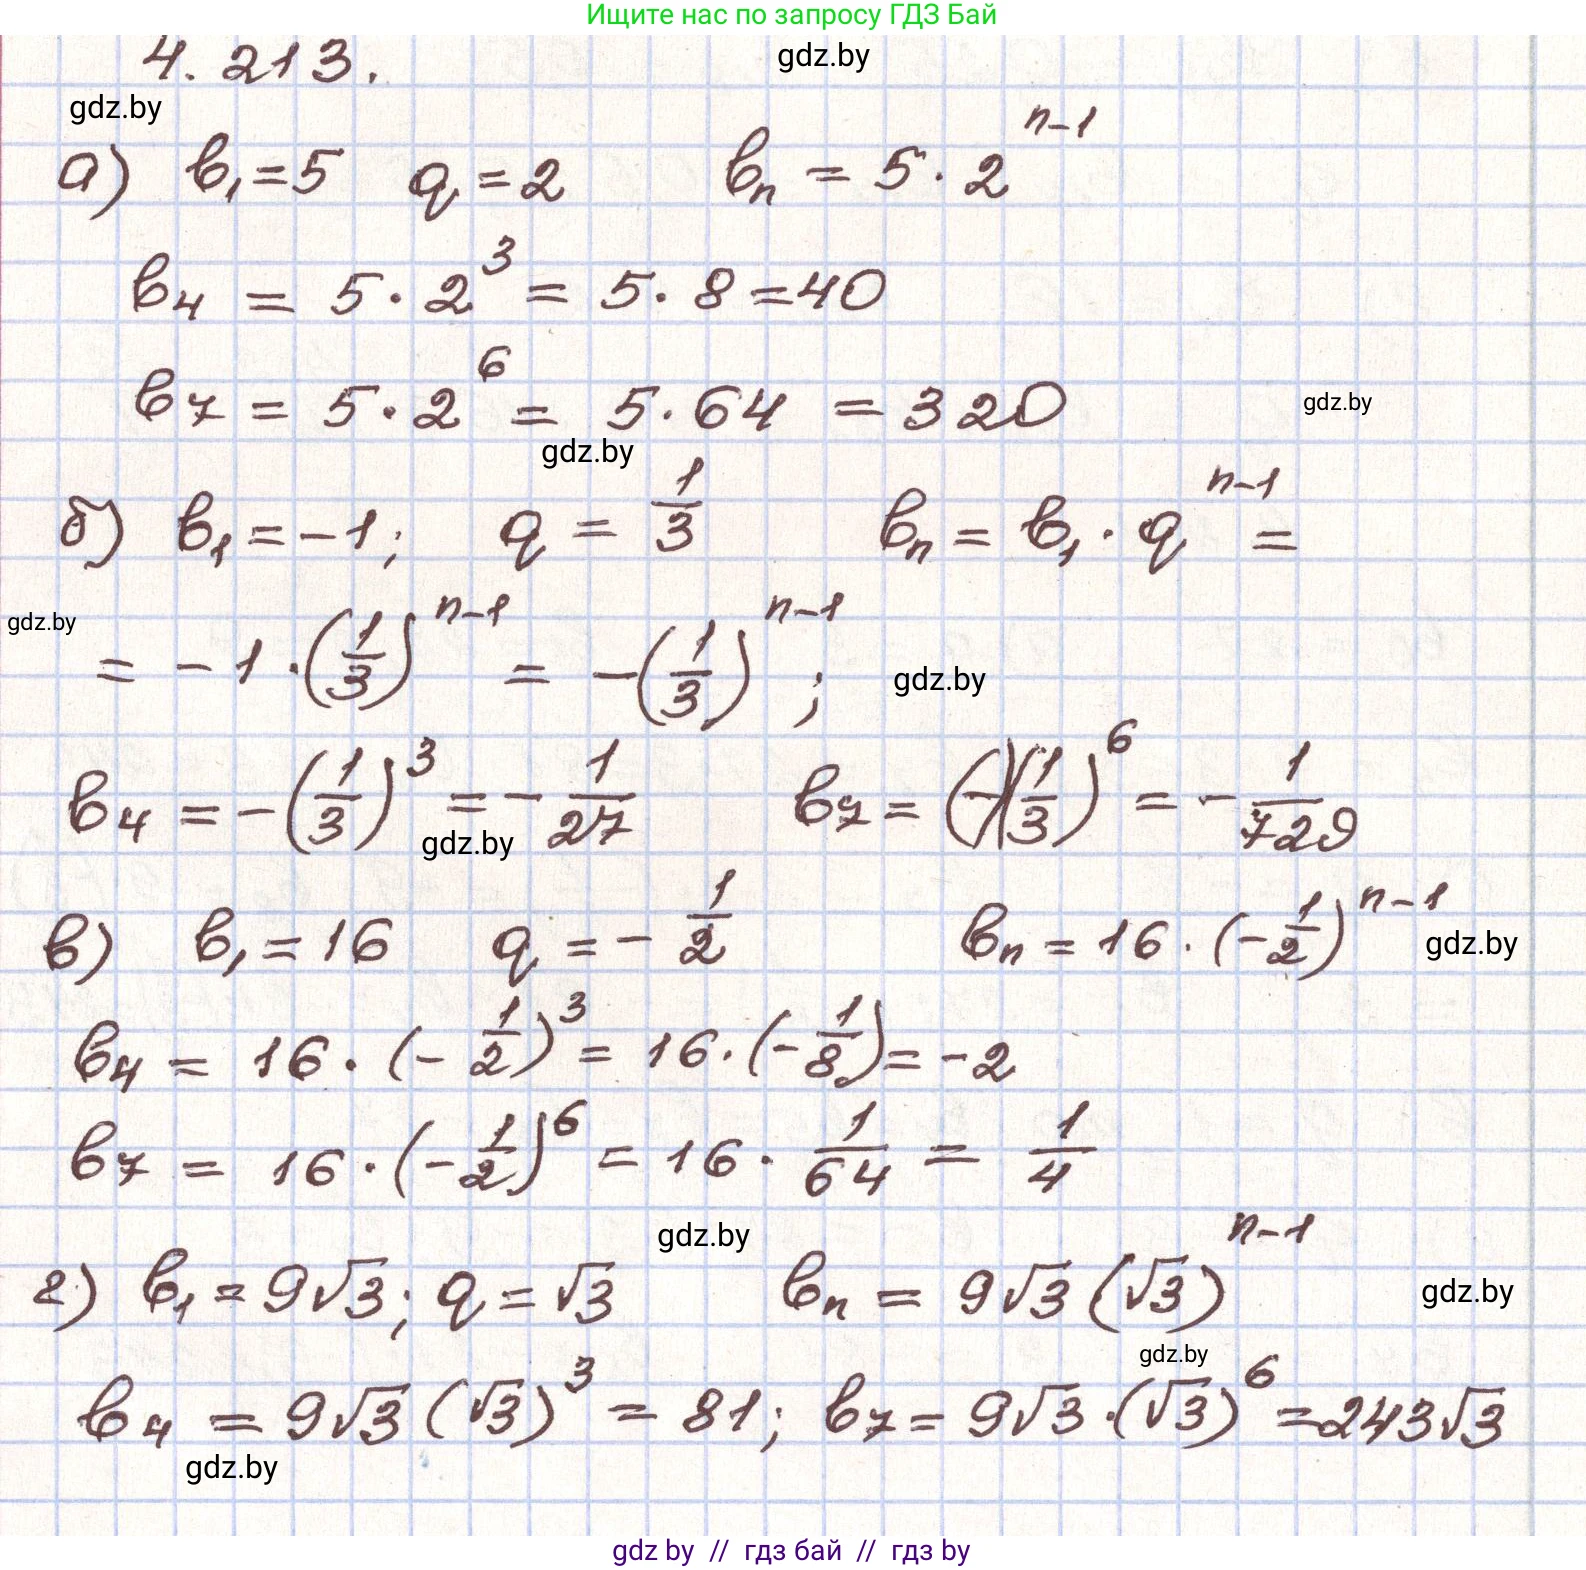 Ищите нас по запросу ГДЗ Бай
4.213.
gdz.by
gdz.by
а) b₁=5 q=2 bₙ = 5·2ⁿ⁻¹
b₄ = 5·2³ = 5·8 =40
b₇ = 5·2⁶ = 5·64 = 320
gdz.by
gdz.by
б) b₁=-1; q = 1/3 bₙ = b₁·qⁿ⁻¹ =
gdz.by
= -1·(1/3)ⁿ⁻¹ = -(1/3)ⁿ⁻¹ ;
gdz.by
b₄ = -(1/3)³ = -1/27 b₇ = (-)(1/3)⁶ = -1/729
gdz.by
в) b₁=16 q = -1/2 bₙ = 16·(-1/2)ⁿ⁻¹
gdz.by
b₄ = 16·(-1/2)³ = 16·(-1/8) = -2
b₇ = 16·(-1/2)⁶ = 16·1/64 = 1/4
gdz.by
г) b₁=9√3; q=√3 bₙ = 9√3(√3)ⁿ⁻¹
gdz.by
gdz.by
b₄ = 9√3(√3)³ = 81; b₇= 9√3·(√3)⁶ =243√3
gdz.by
gdz by // гдз бай // гдз by